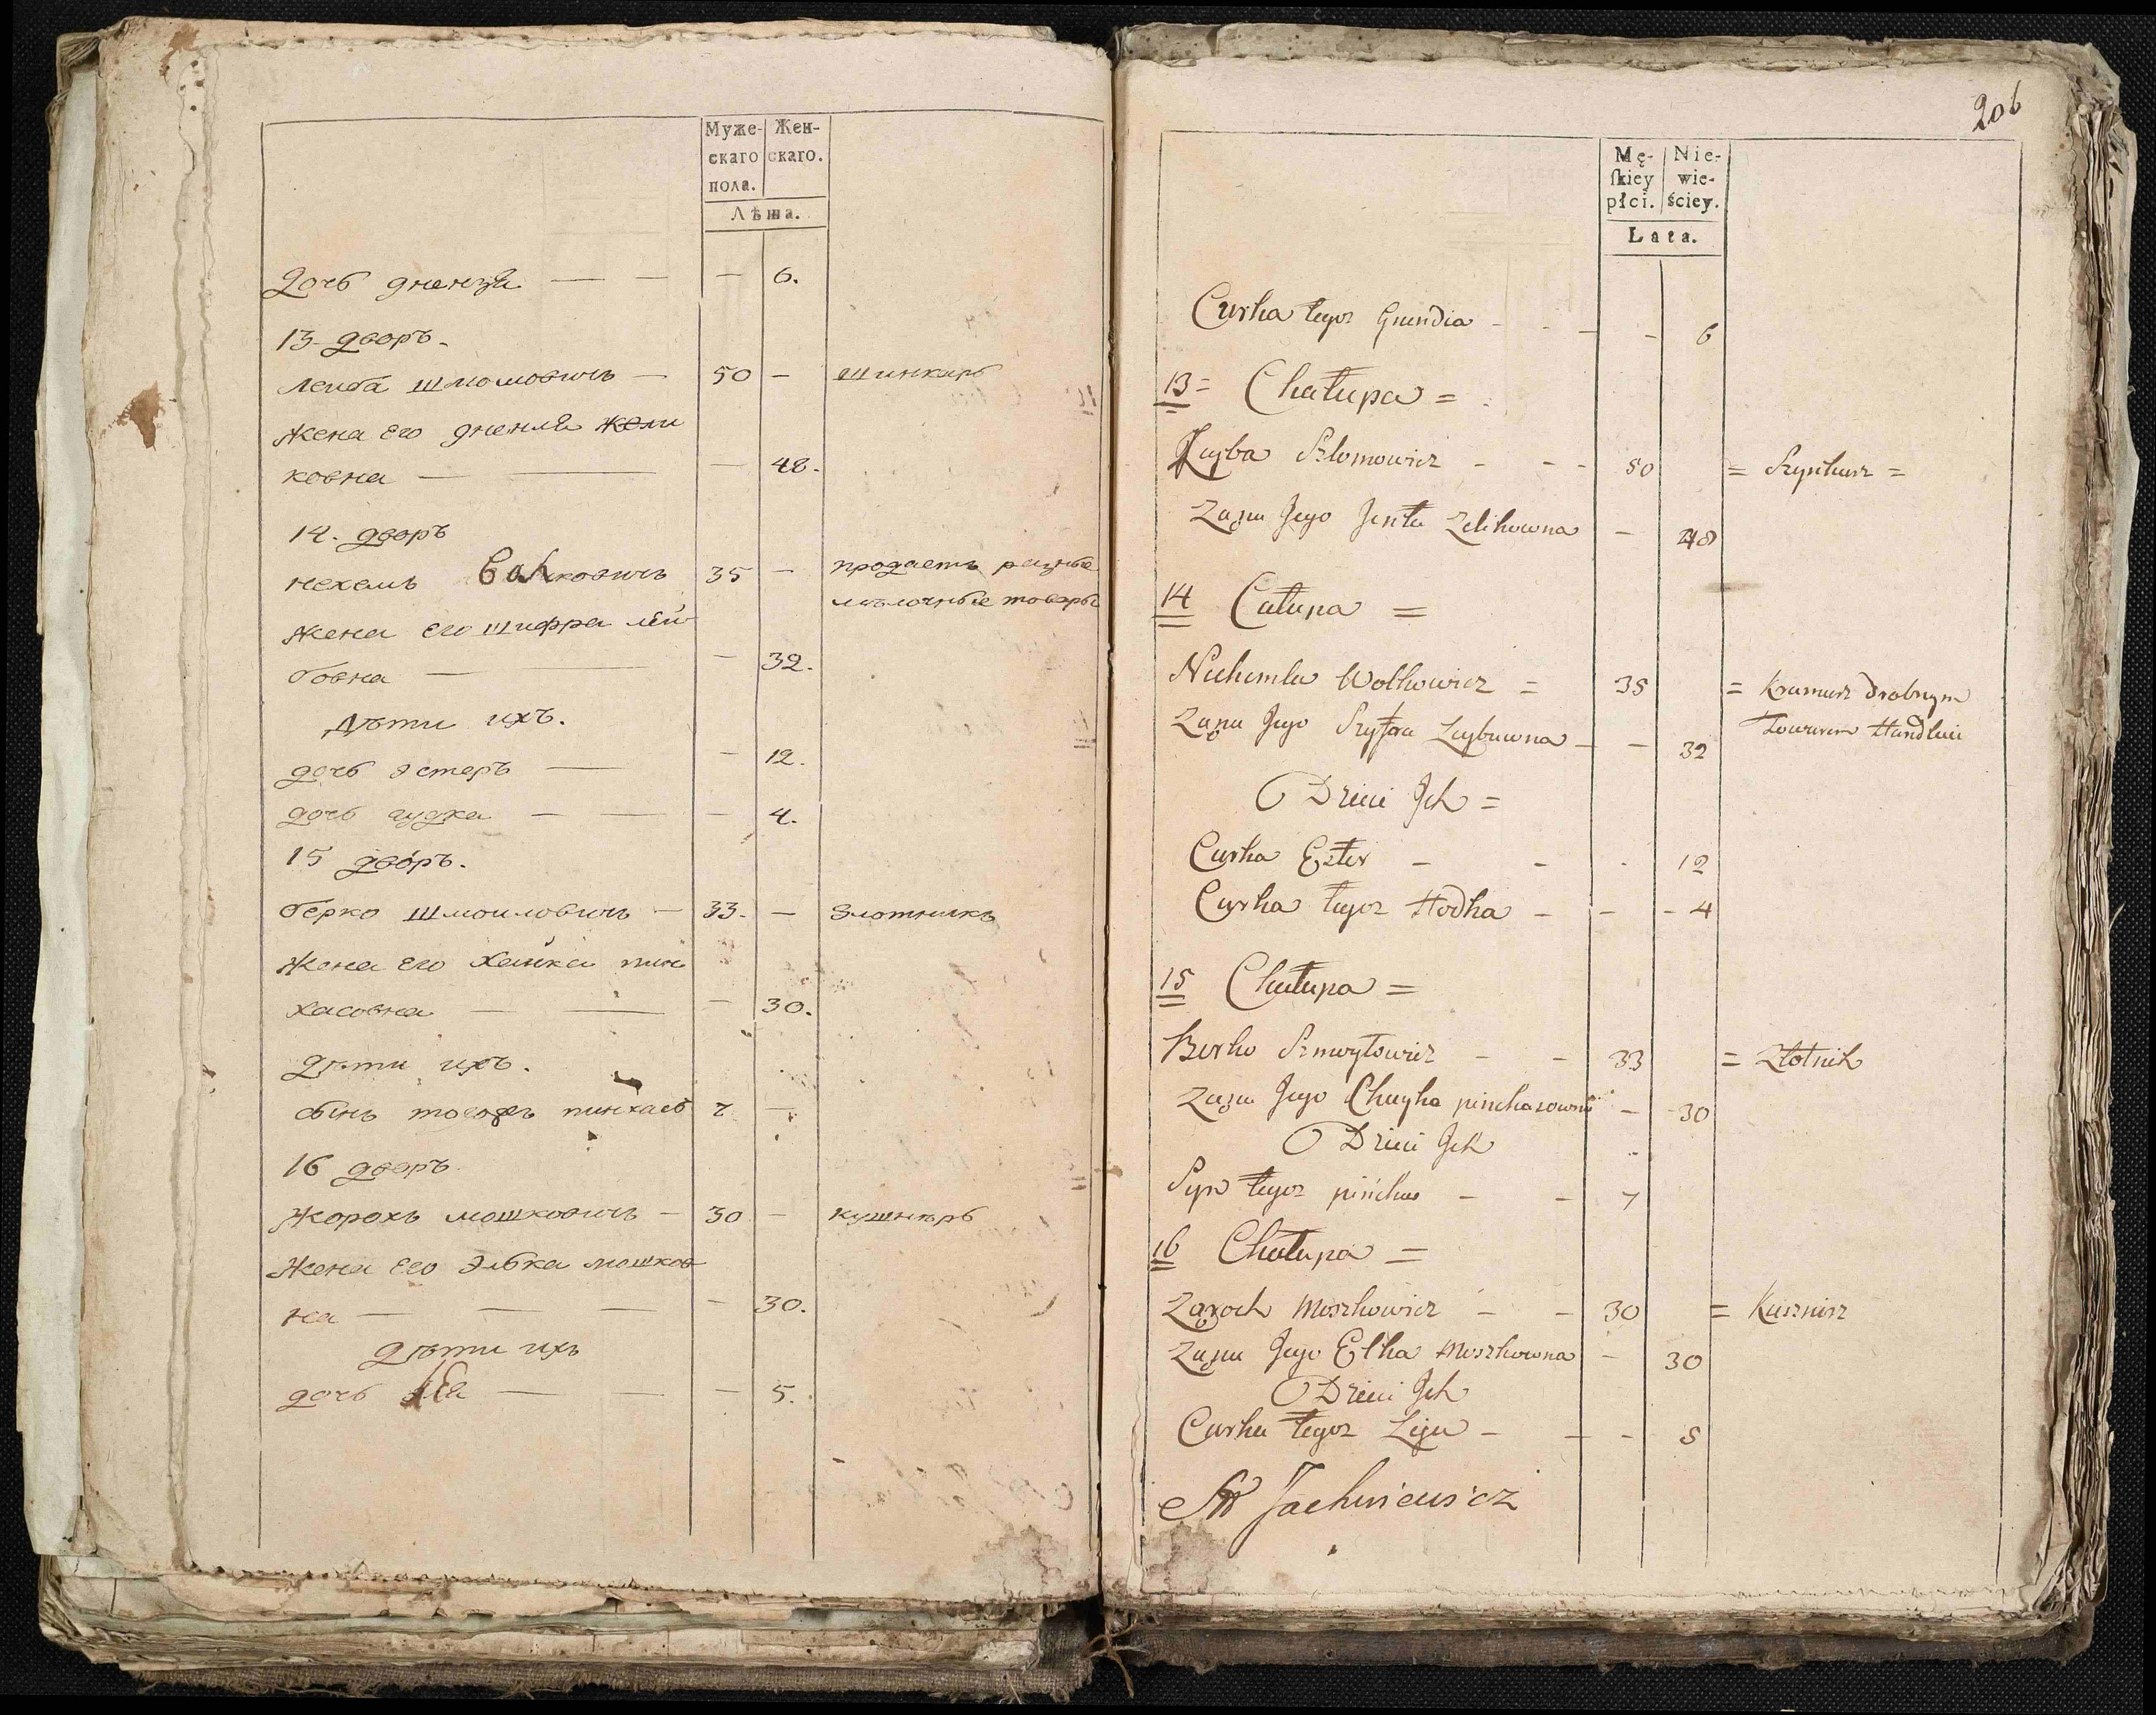 Муже-
скаго
пола.
Жен-
скаго.
Лѣта.
дочь гнендя — — — 6.
13 дворъ.
лейба шмомовичъ — 50 — шинкарь
жена его гненля жели
ковна — — 48.
14. дворъ
нехемь Волковичъ 35 — продаетъ разные
мѣлочные товары
жена его шифра лей
бовна — — 32.
дѣти ихъ.
дочь эстеръ — — 12.
дочь гудка — — — 4.
15 дворъ.
берко шмоиловичъ — 33. — Злотникъ
жена его хайка пин
хасовна — — — 30.
дѣти ихъ.
сынъ тогожъ пинхасъ 7 —
16 дворъ
жорохъ мошковичъ — 30 — кушнѣрь
жена его элька мошков
на — — — — 30.
дѣти ихъ
дочь лея — — — 5.
206
Mę-
skiey
płci.
Nie-
wie-
ściey.
Lata.
Curka tegoz Gnendia - - - - 6
13 = Chałupa =
Leyba Szlomowicz - - - 50 = Szynkarz =
Zana Jego Jentla Zelikowna - 48
14 Całupa =
Nechemla Wolkowicz = 35 = Kramarz drobnym
Towarem Handluie
Zana Jego Szyfra Leybowna - - 32
Dzieci Jch =
Curka Ester - - - 12
Curka tegoz Hodka - - - 4
15 Chałupa =
Berko Szmoyłowicz - - 33 = Złotnik
Zana Jego Chayka pinchasowna - 30
Dzieci Jch
Syn tegoz pinchas - - 7
16 Chałupa =
Zaroch Moszkowicz - - 30 = Kusznierz
Zana Jego Elka Moszkowna - 30
Dzieci Jch
Curka tegoz Leja - - - 5
Jachniewicz